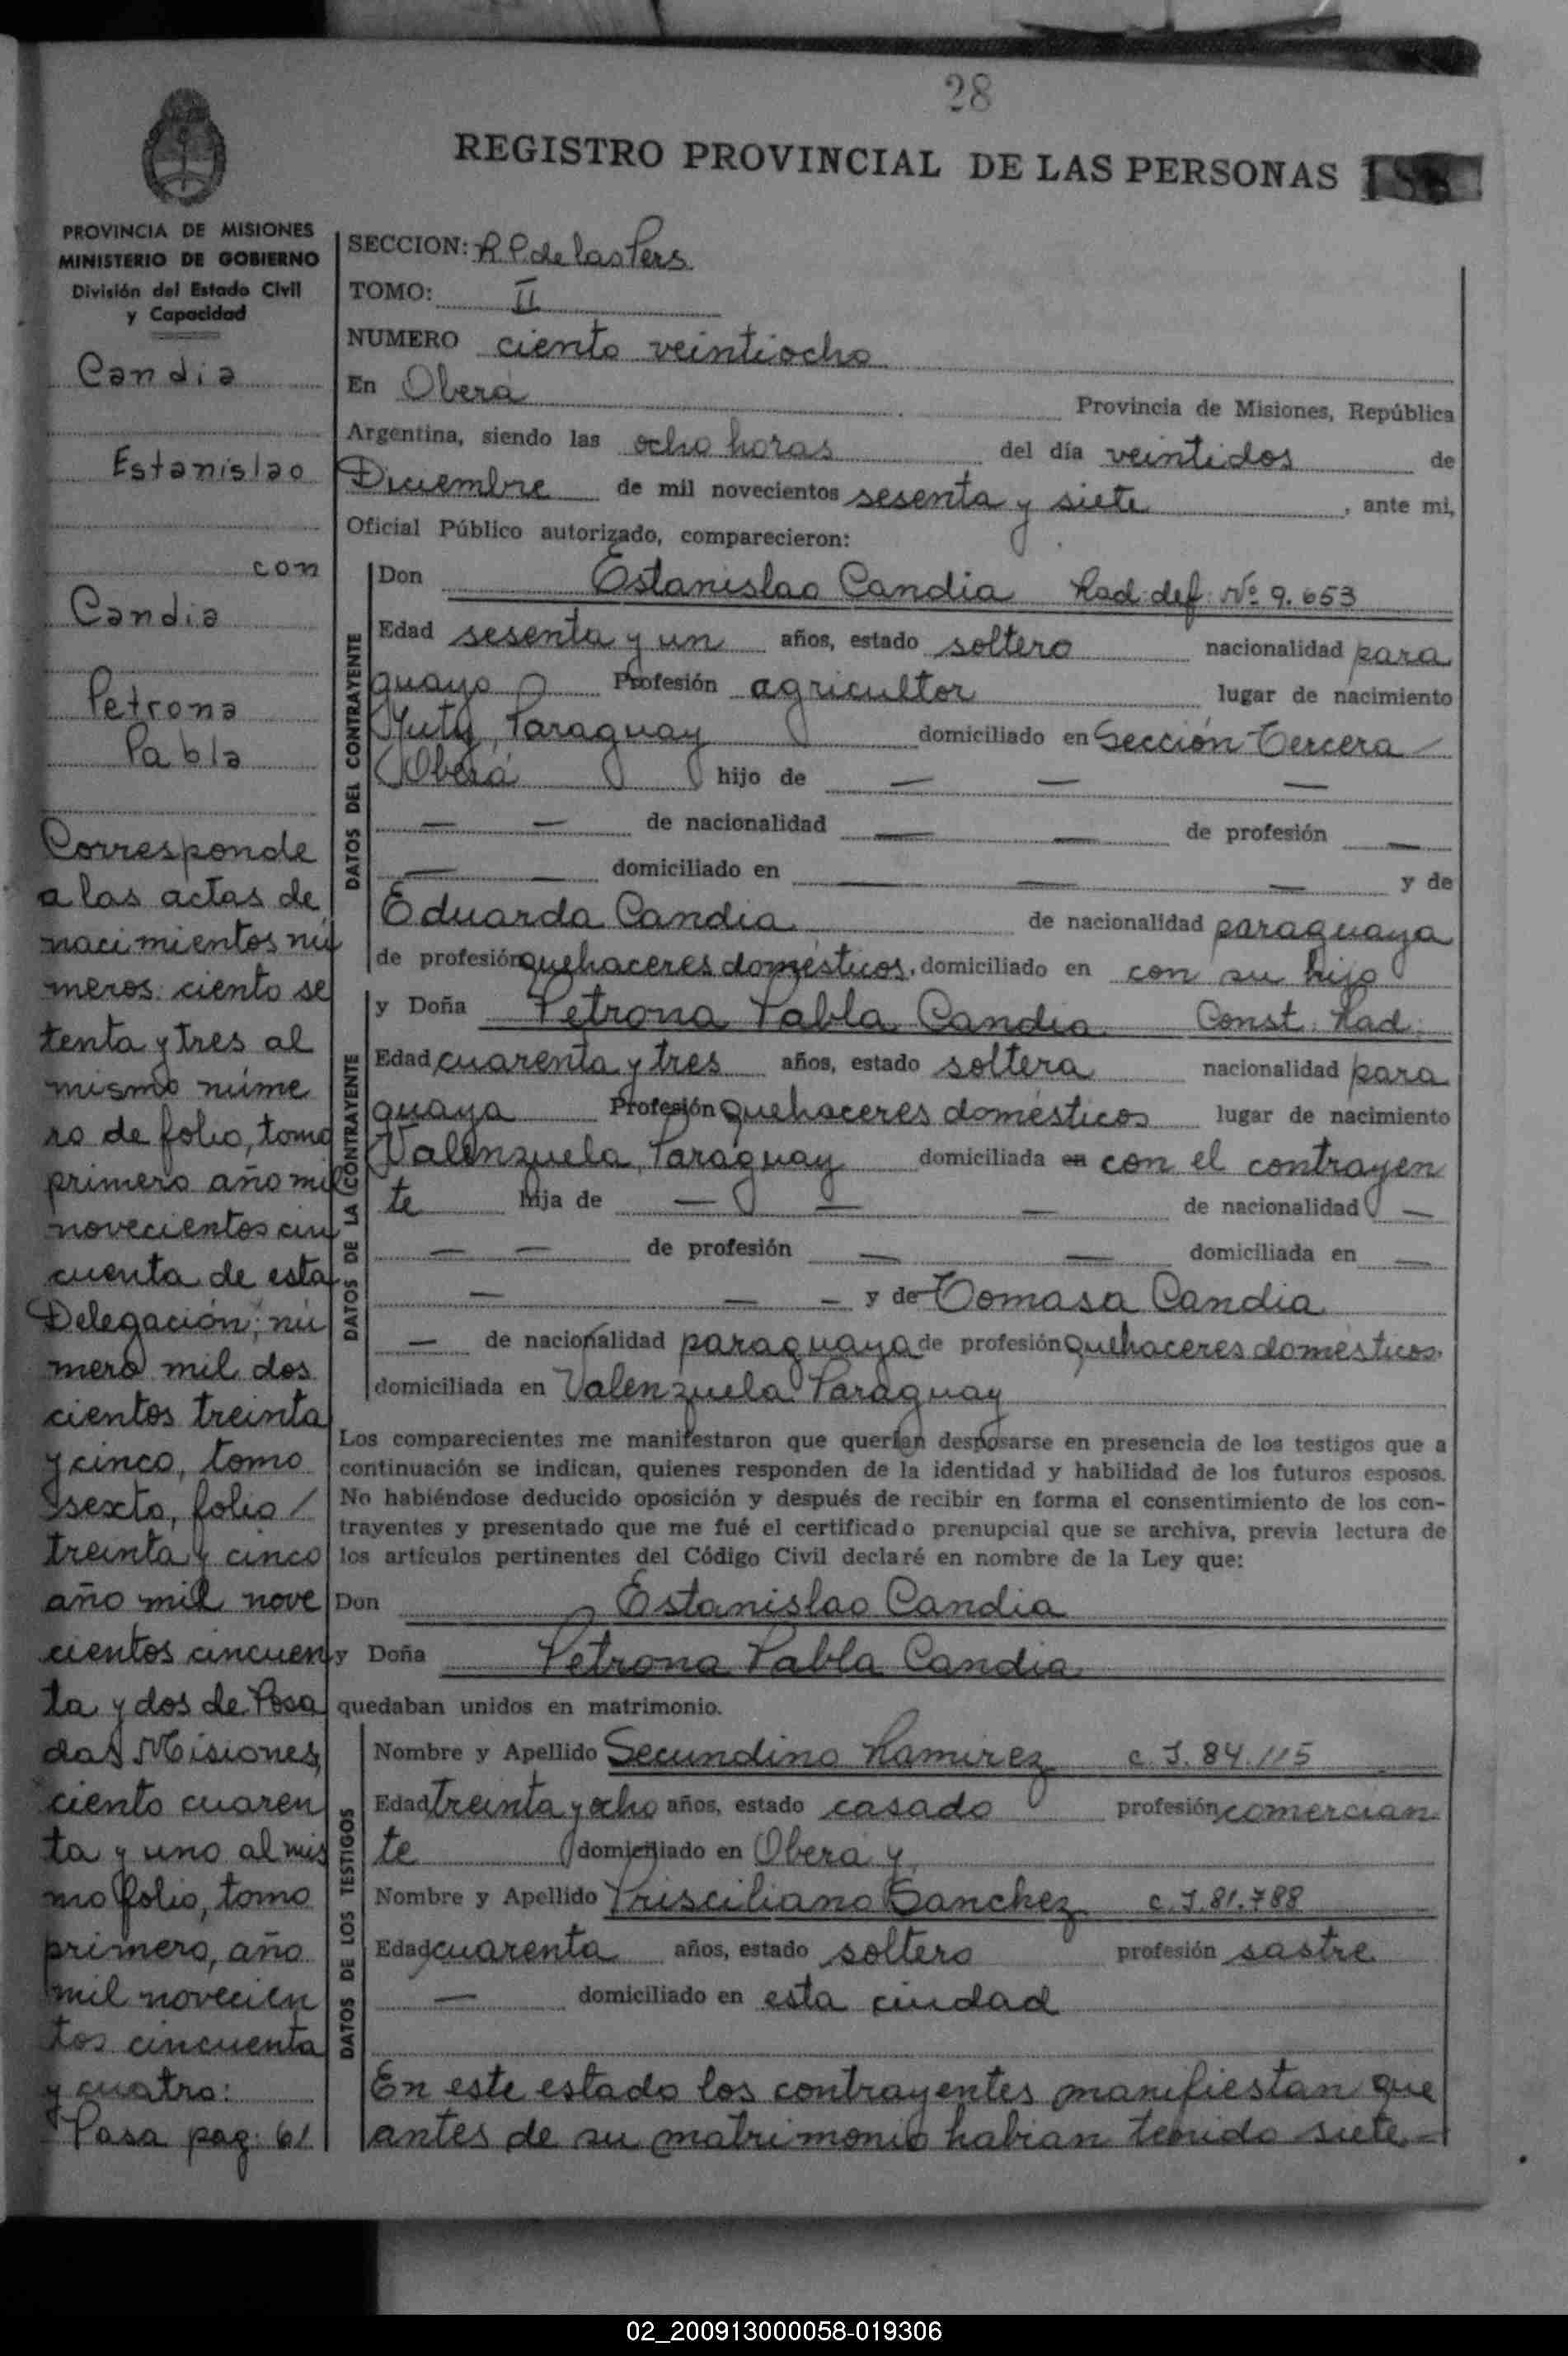 28
REGISTRO PROVINCIAL DE LAS PERSONAS
PROVINCIA DE MISIONES
MINISTERIO DE GOBIERNO
División del Estado Civil
y Capacidad
Candia
Estanislao
con
Candia
Petrona
Pabla
Corresponde
a las actas de
nacimientos nú
meros: ciento se
tenta y tres al
mismo núme
ro de folio, tomo
primero año mil
novecientos cin
cuenta de esta
Delegación; nú
mero mil dos
cientos treinta
y cinco, tomo
sexto, folio /
treinta y cinco
año mil nove
cientos cincuen
ta y dos de Posa
das Misiones,
ciento cuaren
ta y uno al mis
mo folio, tomo
primero, año
mil novecien
tos cincuenta
y cuatro:
Pasa pag: 61
SECCION: R.P. de las Pers.
TOMO: II
NUMERO ciento veintiocho
En Oberá Provincia de Misiones, República
Argentina, siendo las ocho horas del día veintidos de
Diciembre de mil novecientos sesenta y siete, ante mi,
Oficial Público autorizado, comparecieron:
DATOS DEL CONTRAYENTE
Don Estanislao Candia Rad. def. Nº 9.653
Edad sesenta y un años, estado soltero nacionalidad para
guayo Profesión agricultor lugar de nacimiento
Yuty, Paraguay domiciliado en Sección Tercera /
Oberá hijo de — — —
— — de nacionalidad — — de profesión —
— — domiciliado en — — — y de
Eduarda Candia de nacionalidad paraguaya
de profesión quehaceres domésticos, domiciliado en con su hijo
DATOS DE LA CONTRAYENTE
y Doña Petrona Pabla Candia Const. Rad.
Edad cuarenta y tres años, estado soltera nacionalidad para
guaya Profesión quehaceres domésticos lugar de nacimiento
Valenzuela, Paraguay domiciliada en con el contrayen
te hija de — — — de nacionalidad —
— — de profesión — — domiciliada en —
— — — y de Tomasa Candia
— de nacionalidad paraguaya de profesión quehaceres domésticos.
domiciliada en Valenzuela Paraguay
Los comparecientes me manifestaron que querían desposarse en presencia de los testigos que a
continuación se indican, quienes responden de la identidad y habilidad de los futuros esposos.
No habiéndose deducido oposición y después de recibir en forma el consentimiento de los con-
trayentes y presentado que me fué el certificado prenupcial que se archiva, previa lectura de
los artículos pertinentes del Código Civil declaré en nombre de la Ley que:
Don Estanislao Candia
y Doña Petrona Pabla Candia
quedaban unidos en matrimonio.
DATOS DE LOS TESTIGOS
Nombre y Apellido Secundino Ramirez c.I. 84.115
Edad treinta y ocho años, estado casado profesión comercian
te domiciliado en Oberá y
Nombre y Apellido Prisciliano Sanchez c.I. 81.788
Edad cuarenta años, estado soltero profesión sastre
— domiciliado en esta ciudad
En este estado los contrayentes manifiestan que
antes de su matrimonio habian tenido siete-
02_200913000058-019306